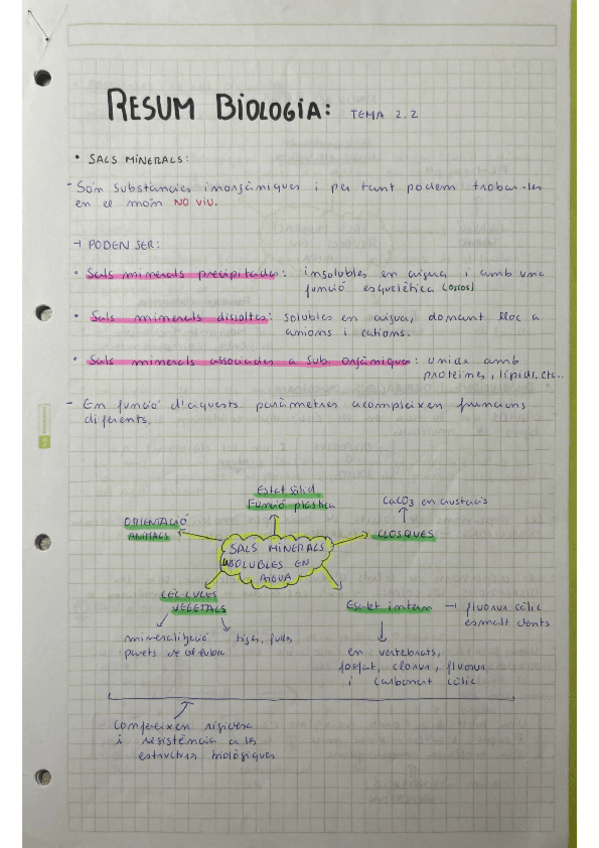 RESUM BIOLOGIA: TEMA 2.2
• SALS MINERALS:
- Són substàncies inorgàniques i per tant podem trobar-les
en el món NO VIU.
→ PODEN SER:
• Sals minerals precipitades: insolubles en aigua i amb una
funció esquelètica (ossos)
• Sals minerals dissoltes: solubles en aigua, donant lloc a
anions i cations.
• Sals minerals associades a sub. orgàniques: unides amb
proteïnes, lípids, etc..
- En funció d'aquests paràmetres acompleixen funcions
diferents.
Estat sòlid
Funció plàstica
CaCO3 en crustacis
ORIENTACIÓ
ANIMALS
CLOSQUES
SALS MINERALS
INSOLUBLES EN
AIGUA
CÈL·LULES
VEGETALS
Esquelet intern → fluorur càlcic
esmalt dents
mineralització
parets de cel·lulosa
tiges, fulles
en vertebrats,
fosfat, clorur, fluorur
i carbonat càlcic
Confereixen rigidesa
i resistència a les
estructures biològiques